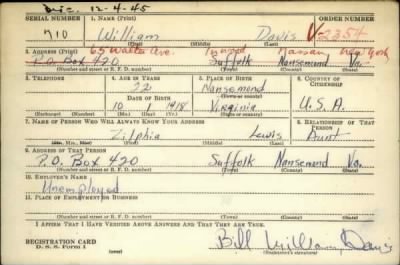 12-4-45
SERIAL NUMBER 1. NAME (Print) ORDER NUMBER
710 William Davis V-2354
2. ADDRESS (Print) 65 Ave. Nassau New York
P.O. Box 420 Suffolk Nansemond Va.
(Number and street or R. F. D. number) (Town) (County) (State)
3. TELEPHONE 4. AGE IN YEARS 5. PLACE OF BIRTH 6. COUNTRY OF CITIZENSHIP
22 Nansemond
DATE OF BIRTH
10 1 1918 Virginia U.S.A.
(Mo.) (Day) (Yr.) (State or country)
7. NAME OF PERSON WHO WILL ALWAYS KNOW YOUR ADDRESS 8. RELATIONSHIP OF THAT PERSON
Zilphia Lewis Aunt
(Mr., Mrs., Miss) (First) (Middle) (Last)
9. ADDRESS OF THAT PERSON
P.O. Box 420 Suffolk Nansemond Va.
(Number and street or R. F. D. number) (Town) (County) (State)
10. EMPLOYER'S NAME
Unemployed
11. PLACE OF EMPLOYMENT OR BUSINESS
(Number and street or R. F. D. number) (Town) (County) (State)
I AFFIRM THAT I HAVE VERIFIED ABOVE ANSWERS AND THAT THEY ARE TRUE.
REGISTRATION CARD
D. S. S. Form 1
Bill William Davis
(Registrant's signature)